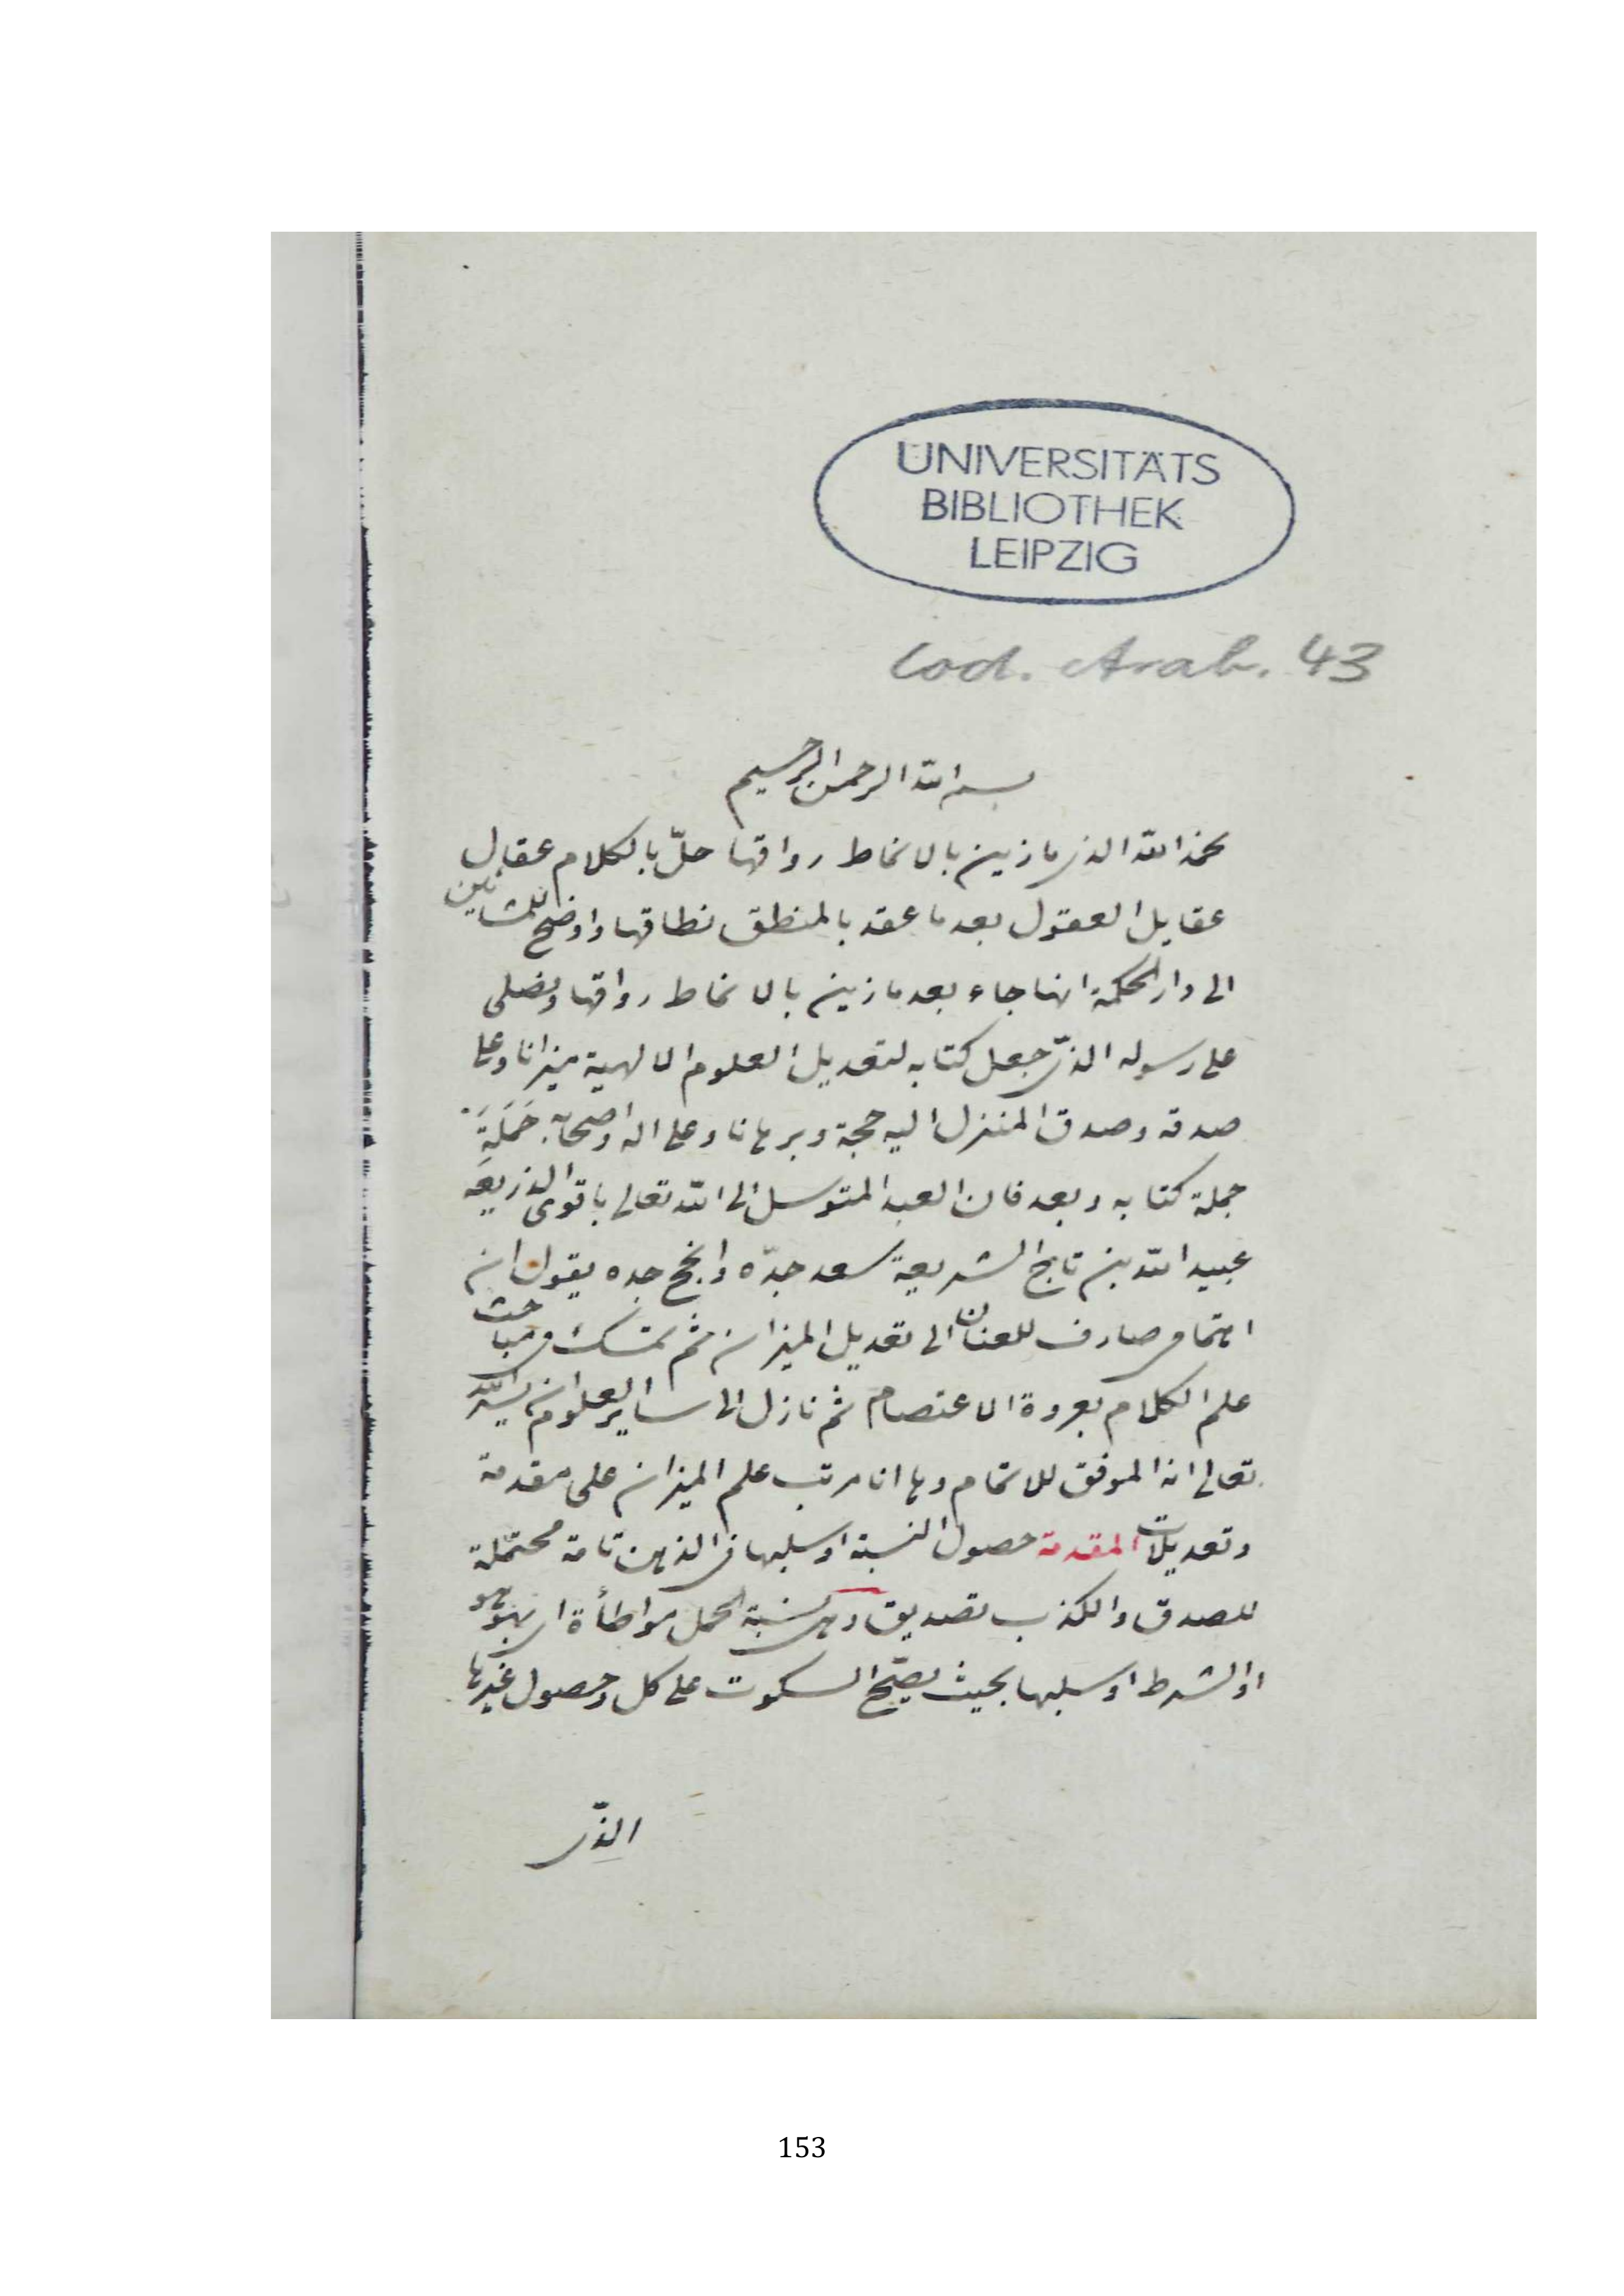 UNIVERSITÄTS
BIBLIOTHEK
LEIPZIG
Cod. Arab. 43
بسم الله الرحمن الرحيم
نحمد الله الذى ما زين بالانماط رواقها حلّ بالكلام عقال
عقايل العقول بعد ما عقد بالمنطق نطاقها واوضح للمشائين
الى دار الحكمة انها جاء بعد ما زين بالانماط رواقها ونصلى
على رسوله الذى جعل كتابه لتعديل العلوم الالهية ميزانا وعلى
صدقه وصدق المنزل اليه حجة وبرهانا وعلى اله واصحابه حَمَلَةِ
جملة كتابه وبعد فان العبد المتوسل الى الله تعالى باقوى الذريعة
عبيد الله بن تاج الشريعة سعد جدّه وانجح جده يقول ان
اهتمامى صارف للعنان الى تعديل الميزان ثم تمسك فى مباحث
علم الكلام بعروة الاعتصام ثم نازل الى ساير العلوم ان يسر الله
تعالى انه الموفق للاتمام وها انا مرتب علم الميزان على مقدمة
وتعديلات المقدمة حصول النسبة او سلبها فى الذهن تامة محتملة
للصدق والكذب تصديق وهى نسبة الحمل مواطأة اى بهو هو
او الشرط او سلبها بحيث يصّح السكوت على كل وحصول غيرها
الذى
153